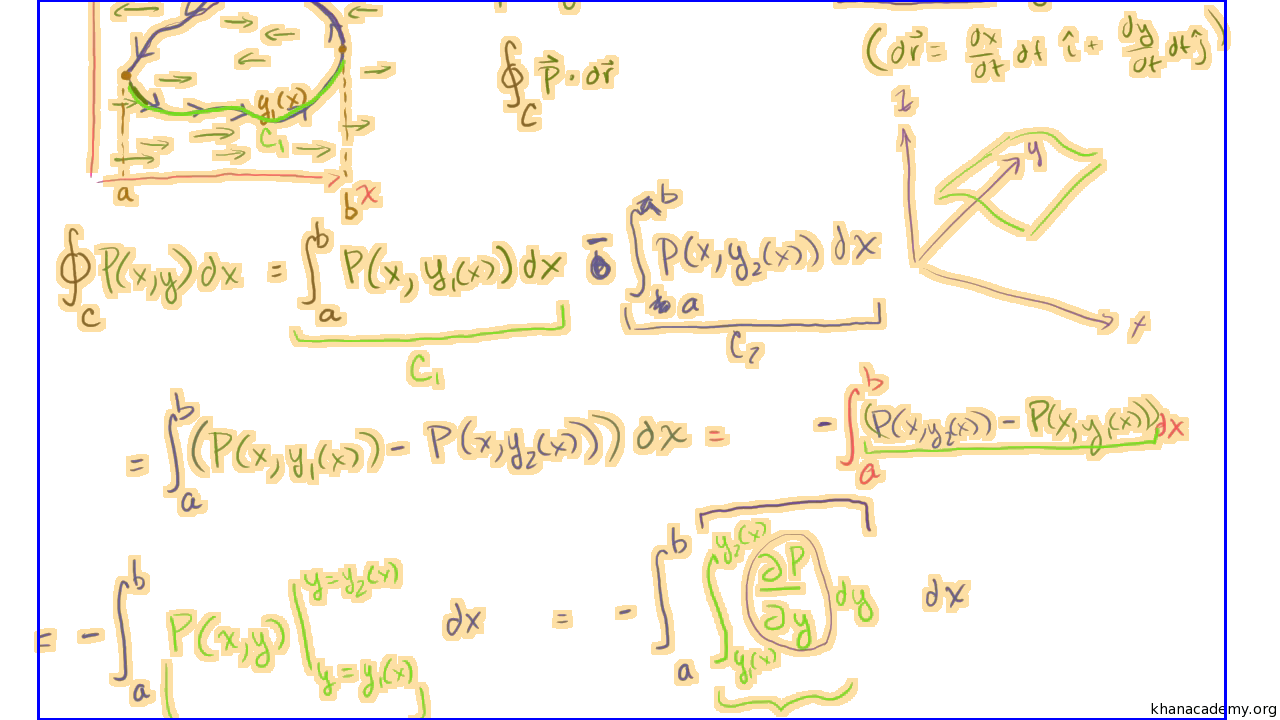 (dr⃗ = dx/dt dt î + dy/dt dt ĵ)
∮_C P⃗ · dr⃗
y₁(x)
C₁
a
b
x
z
y
x
∮_C P(x,y) dx = ∫_a^b P(x, y₁(x)) dx − ∫_a^b P(x, y₂(x)) dx
C₁
C₂
= ∫_a^b (P(x, y₁(x)) − P(x, y₂(x))) dx = − ∫_a^b (P(x, y₂(x)) − P(x, y₁(x))) dx
= − ∫_a^b P(x,y) |_{y=y₁(x)}^{y=y₂(x)} dx = − ∫_a^b ∫_{y₁(x)}^{y₂(x)} ∂P/∂y dy dx
khanacademy.org